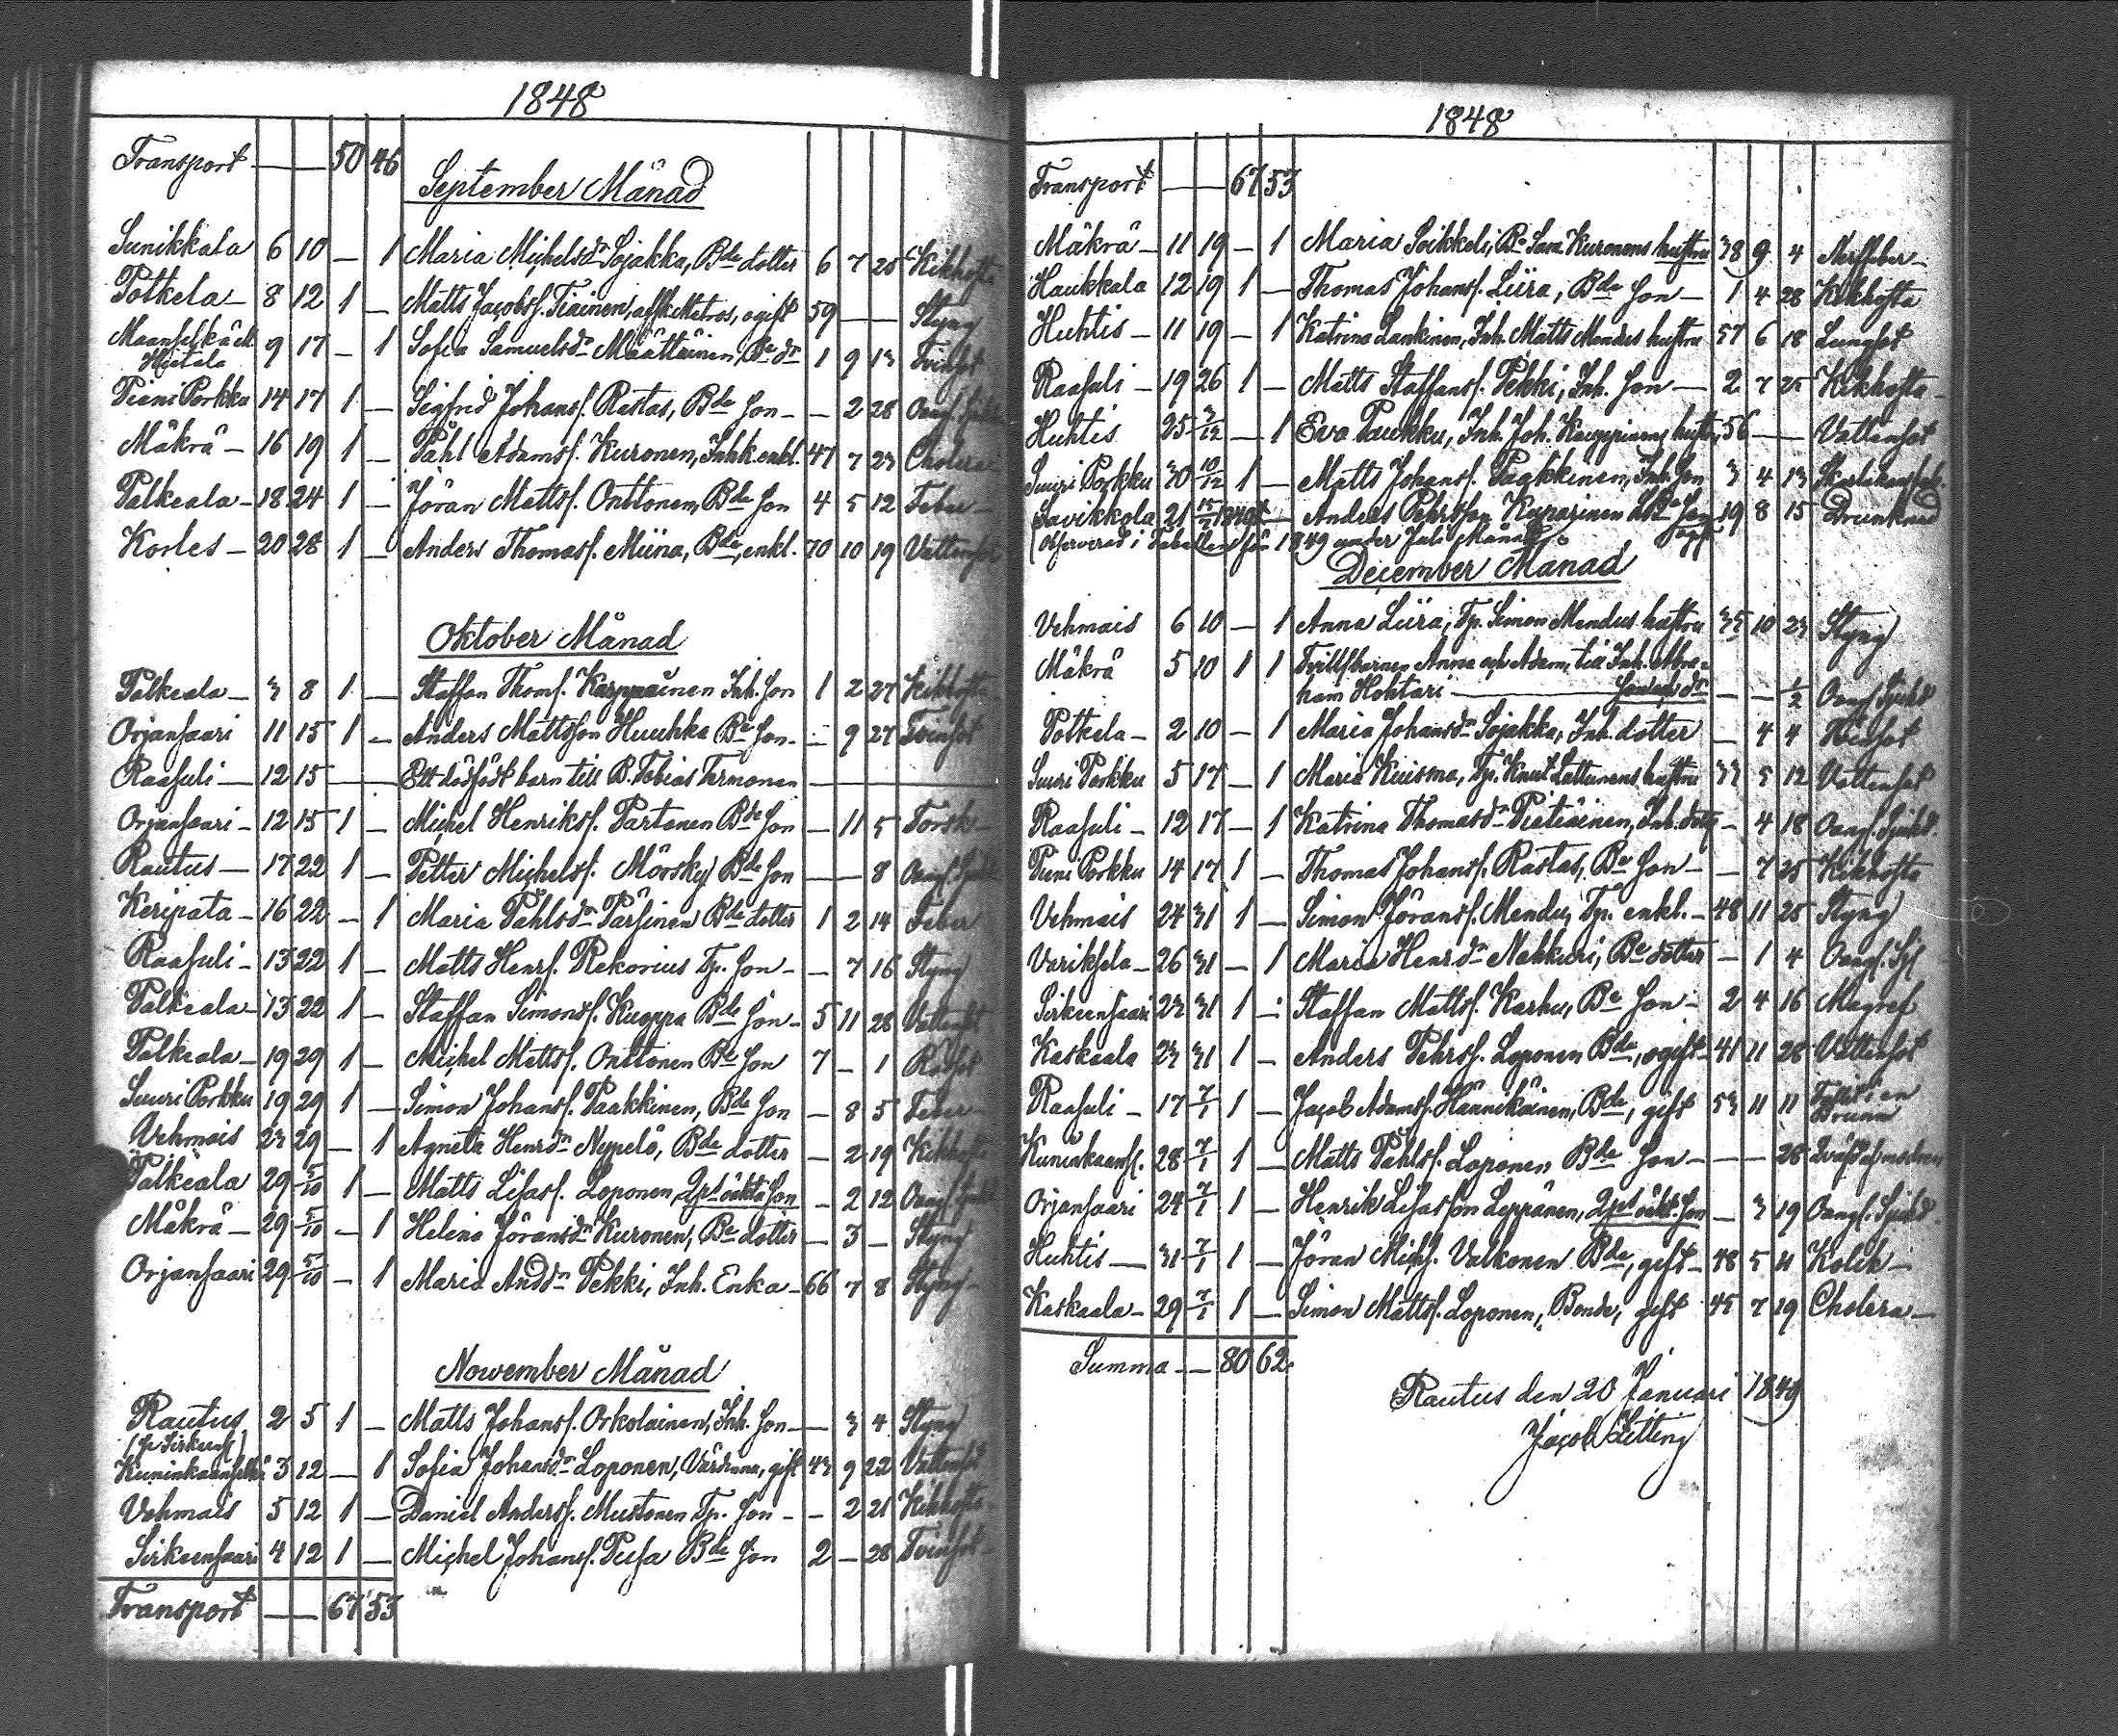 1848
Transport — — 50 46
September Månad
Sunikkala 6 10 — 1 Maria Michelsdr Sojakka, Bde dotter 6 7 25 Kikhosta
Potkela — 8 12 1 — Matts Jacobss. Tiainen, afsk. Matros, ogift 59 — — Styng
Maanselkä &
Hietala 9 17 — 1 Sofia Samuelsdr Määttäinen, Be dr 1 9 13 Tvinsot
Pieni Porkku 14 17 1 — Sigfrid Johanss. Rastas, Bde Son — — 2 28 Oangf. Sjukd
Mäkrä — 16 19 1 — Påhl Adamss. Kuronen, Inh. enkl. 47 7 23 Cholera
Palkeala — 18 24 1 — Jöran Mattss. Onttonen, Bde Son 4 5 12 Feber
Korles — 20 28 1 — Anders Thomass. Miina, Bde, enkl. 70 10 19 Vattensot
Oktober Månad
Palkeala — 3 8 1 — Staffan Thoms. Karppainen Inh. Son 1 2 27 Kikhosta
Orjansaari 11 15 1 — Anders Mattsson Huuhka Be Son — — 9 27 Tvinsot
Raasuli — 12 15 — — Ett dödfödt barn till B. Tobias Termonen — — —
Orjansaari — 12 15 1 — Michel Henrikss. Partanen Bde Son — 11 5 Torsk
Rautus — 17 22 1 — Petter Michelss. Mörsky Bde Son — — 8 Oangf. Sjukd
Keripata — 16 22 — 1 Maria Påhlsdr Pärsinen Bde dotter 1 2 14 Feber
Raasuli — 13 22 1 — Matts Henrs. Rekorius Tp. Son — — 7 16 Styng
Palkeala — 13 22 1 — Staffan Simonss. Kuoppa Bde Son — 5 11 28 Vattensot
Palkeala — 19 29 1 — Michel Mattss. Onttonen Be Son 7 — 1 Rödsot
Suuri Porkku 19 29 1 — Simon Johanss. Paakkinen, Bde Son — 8 5 Feber
Vehmais 23 29 — 1 Agneta Henrdr Neppelö, Bde dotter — 2 19 Kikhosta
Palkeala 29 5/10 1 — Matts Lisass. Loponen, Ospd äkta Son — 2 12 Oangf. Sjukd
Mäkrä — 29 5/10 — 1 Helena Jöransdr Kuronen, Be dotter — 3 — Styng
Orjansaari 29 5/10 — 1 Maria Andsdr Pekki, Inh. Enka — 66 7 8 Styng
Nowember Månad
Rautus 2 5 1 — Matts Johanss. Orkolainen, Inh. Son — — 3 4 Styng
Kuninkaanselkä 3 12 — 1 Sofia Johansdr Loponen, Värdinna, gift 43 9 22 Vattensot
Vehmais 5 12 1 — Daniel Anderss. Mustonen Tp. Son — — 2 21 Kikhosta
Sirkeensaari 4 12 1 — Michel Johanss. Pusa Bde Son 2 — 28 Tvinsot
Transport — — 67 53
1848
Transport — — 67 53
Mäkrä — 11 19 — 1 Maria Soikkeli, Be Sam. Kuronens hustru 38 9 4 Nerffeber
Haukkala 12 19 1 — Thomas Johanss. Liira, Bde Son — 1 4 28 Kikhosta
Huhtis — 11 19 — 1 Katrina Lankinen, Inh. Matts Mendus hustru 57 6 18 Lungsot
Raasuli — 19 26 1 — Matts Staffanss. Pekki, Inh. Son — 2 7 25 Kikhosta
Huhtis 25 3/12 — 1 Eva Paukku, Inh. Joh. Kauppinens hustru 56 — — Vattensot
Suuri Porkku 30 10/12 1 — Matts Johanss. Paakkinen, Inh. Son 3 4 13 Skarlakansfeb.
Savikkola 21 15/7 1849 1 — Anders Pehrsson Kuparinen LBde Son 19 8 15 Drunknad
(observerad i Tabellen för 1849 under Juli Månad) ogift
December Månad
Vehmais 6 10 — 1 Anna Liira, Tp. Simon Mendus hustru 35 10 23 Styng
Mäkrä 5 10 1 1 Tvillbarnen Anna och Adam, till Inh. Abra-
ham Hohtari — Son och dr — — 1/2 Oangf. Sjukd
Potkela — 2 10 — 1 Maria Johansdr Sojakka, Inh. dotter — 4 4
Suuri Porkku 5 17 — 1 Maria Kuisma, Tp. Knut Lattunens hustru 33 5 12 Vattensot
Raasuli — 12 17 — 1 Katrina Thomasdr Pietiäinen, Inh. dotter — 4 18 Oangf. Sjukd.
Pieni Porkku 14 17 1 — Thomas Johanss. Rastas, Be Son — — 7 25 Kikhosta
Vehmais 24 31 1 — Simon Jöranss. Mendu, Tp. enkl. — 48 11 25 Styng
Variksela — 26 31 — 1 Maria Henrdr Nahkuri, Be dotter — 1 4 Oangf. Sj
Sirkeensaari 23 31 1 — Staffan Mattss. Karhu, Be Son — 2 4 16 Magref
Kaskaala 23 31 1 — Anders Pehrss. Loponen Bde, ogift — 41 11 28 Vattensot
Raasuli — 17 7/1 1 — Jacob Adamss. Hännikäinen, Bde, gift 53 11 11 Fallit i en
Brunn
Kuninkaans. 28 7/1 1 — Matts Påhlss. Loponen Bde Son — — — 28 Qväfd af modren
Orjansaari 24 7/1 1 — Henrik Lisasson Leppänen, Ospd äkt. Son — 3 19 Oangf. Sjukd.
Huhtis — 31 7/1 1 — Jöran Michs. Valkonen Bde, gift — 48 5 11 Kolik
Kaskaala — 29 7/1 1 — Simon Mattss. Loponen, Bonde, gift 45 7 19 Cholera
Summa — — 80 62
Rautus den 20 Januari 1849
Jacob Zitting